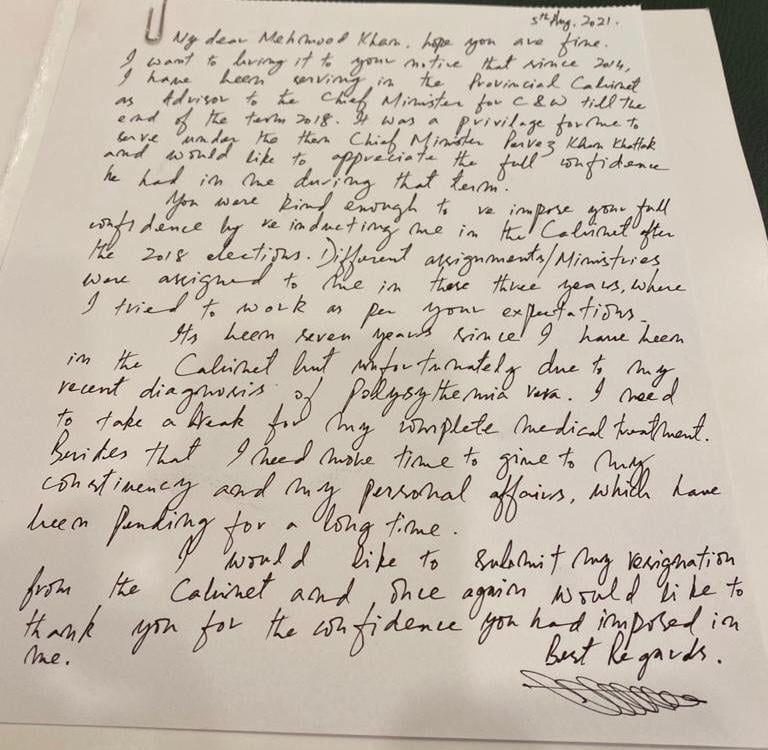 5th Aug, 2021.
My dear Mehmood Khan, hope you are fine.
I want to bring it to your notice that since 2014,
I have been serving in the Provincial Cabinet
as Advisor to the Chief Minister for C&W till the
end of the term 2018. It was a privilage for me to
serve under the then Chief Minister Pervez Khan Khattak
and would like to appreciate the full confidence
he had in me during that term.
You were kind enough to re impose your full
confidence by re inducting me in the Cabinet after
the 2018 elections. Different assignments/Ministries
were assigned to me in these three years, where
I tried to work as per your expectations.
Its been seven years since I have been
in the Cabinet but unfortunately due to my
recent diagnosis of Polysythemia vera. I need
to take a break for my complete medical treatment.
Besides that I need more time to give to my
constinuency and my personal affairs, which have
been pending for a long time.
I would like to submit my resignation
from the Cabinet and once again would like to
thank you for the confidence you had imposed in
me. Best Regards.